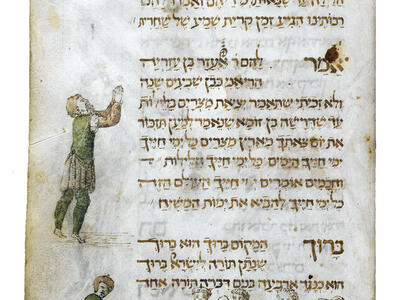 ואמרו להם
רבותינו הגיע זמן קרית שמע של שחרית
אמר להם ר אלעזר בן עזריה
הרי אני כבן שבעים שנה
ולא זכיתי שתאמר יציאת מצרים בלילות
עד שדרישה בן זומא שנאמר למען תזכור
את יום צאתך מארץ מצרים כל ימי חייך
ימי חייך הימים כל ימי חייך הלילות
וחכמים אומרים ימי חייך העולם הזה
כל ימי חייך להביא את ימות המשיח
ברוך המקום ברוך הוא ברוך
שנתן תורה לישרא ברוך
הוא כנגד ארבעה בנים דברה תורה אחד